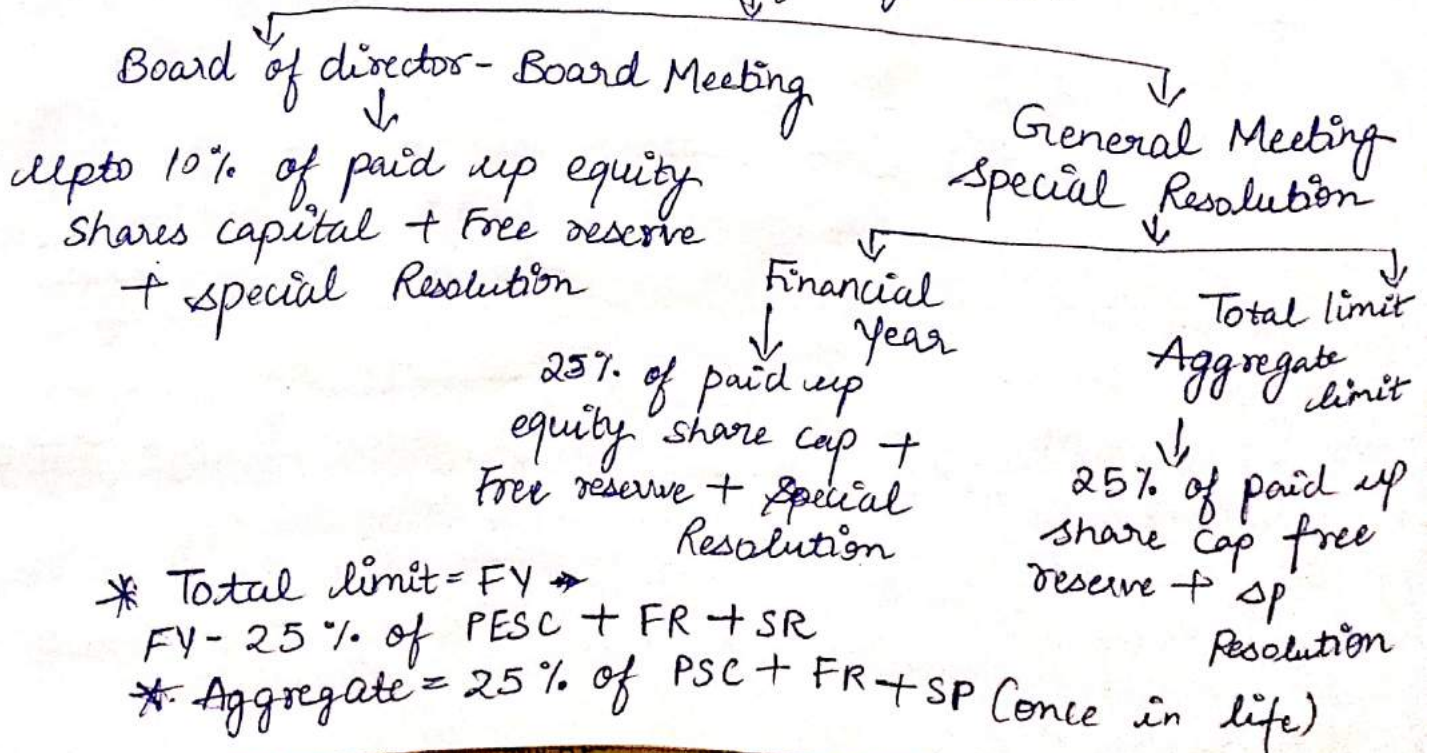 Board of director - Board Meeting
Upto 10% of paid up equity
shares capital + Free reserve
+ special Resolution
General Meeting
special Resolution
Financial
Year
25% of paid up
equity share cap +
Free reserve + Special
Resolution
Total limit
Aggregate
limit
25% of paid up
share cap free
reserve + sp
Resolution
* Total limit = FY →
FY - 25% of PESC + FR + SR
* Aggregate = 25% of PSC + FR + SP (once in life)